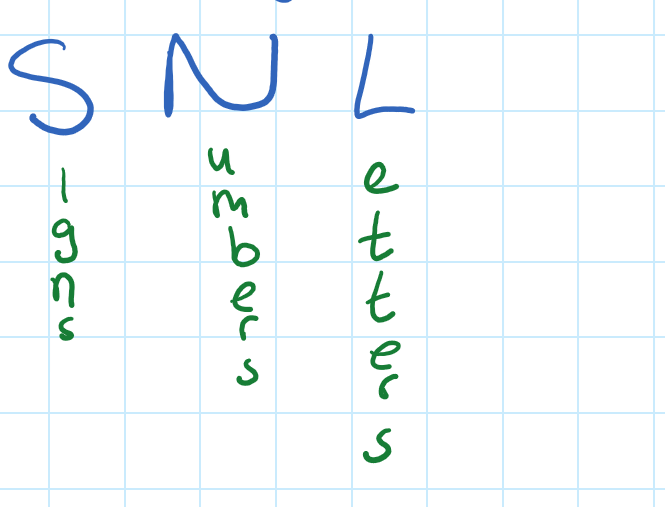 S N L
igns
umbers
etters